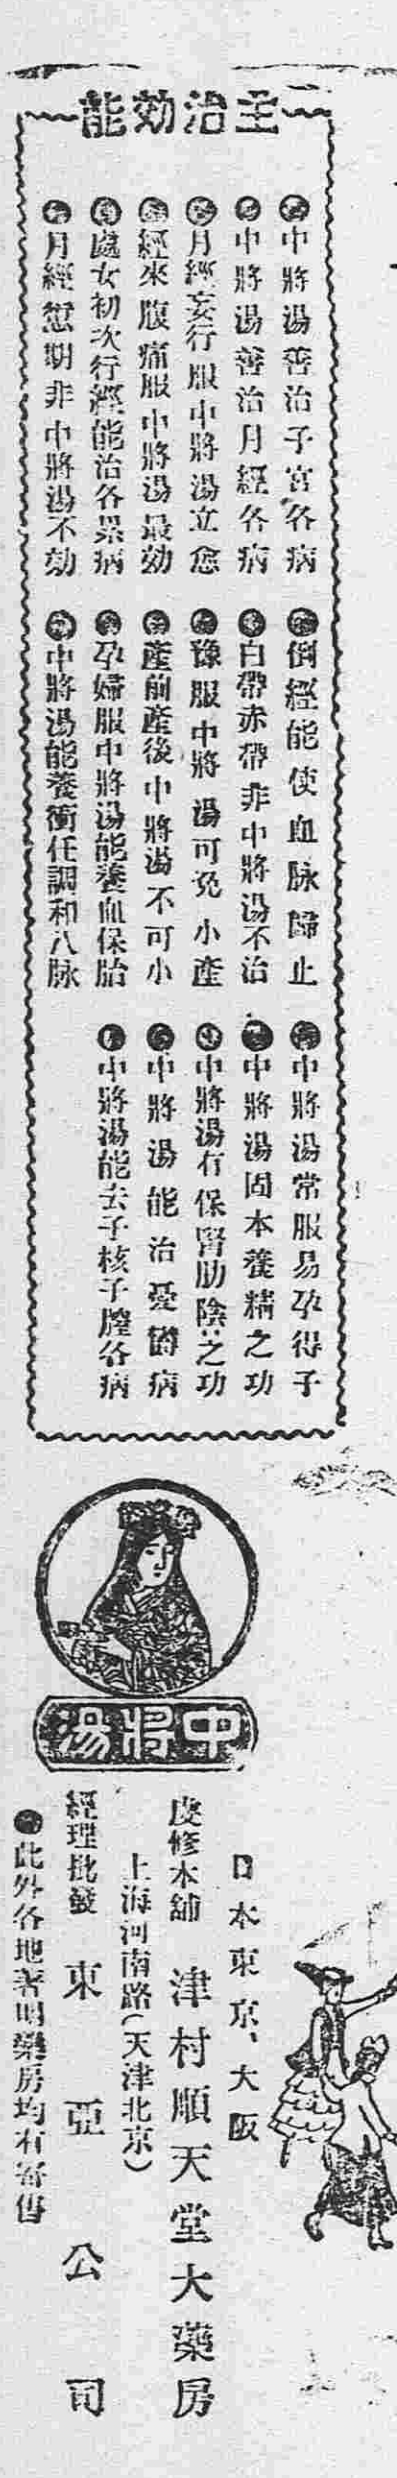 主治効能
中將湯善治子宮各病
中將湯善治月經各病
月經妄行服中將湯立愈
經來腹痛服中將湯最効
處女初次行經能治各異病
月經愆期非中將湯不効
倒經能使血脉歸止
白帶赤帶非中將湯不治
豫服中將湯可免小產
產前產後中將湯不可小
孕婦服中將湯能養血保胎
中將湯能養衝任調和八脉
中將湯常服易孕得子
中將湯固本養精之功
中將湯有保腎肋陰之功
中將湯能治憂鬱病
中將湯能去子核子膣各病
中將湯
日本東京、大阪
虔修本舖 津村順天堂大藥房
上海河南路(天津北京)
經理批發 東亞公司
此外各地著明藥房均有寄售